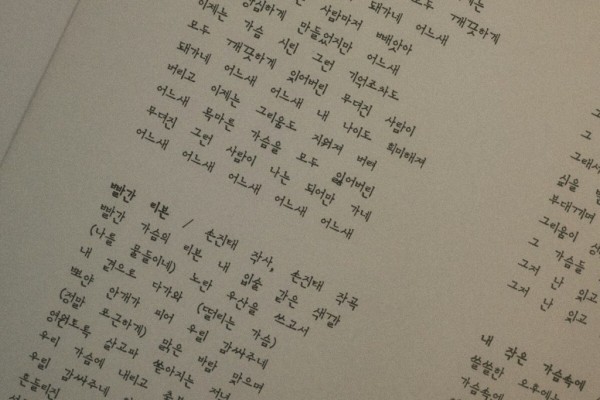 이제는
모두 깨끗하게
돼가네 어느새
사람마저 빼앗아
만들었지만 어느새
이제는 가슴 시린 그런 기억조차도
모두 깨끗하게 잊어버린 무뎌진 사람이
돼가네 어느새 어느새 내 나이도 희미해져
버리고 이제는 그리움도 지워져 버려
어느새 목마른 가슴을 모두 잃어버린
무뎌진 그런 사람이 나는 되어만 가네
어느새 어느새 어느새 어느새 어느새
빨간 리본 / 손진태 작사, 손진태 작곡
빨간 가슴의 리본 내 입술 같은 색깔
(나를 물들이네) 노란 우산을 쓰고서
내 곁으로 다가와 (떨리는 가슴)
뽀얀 안개가 피어 우릴 감싸주네
(정말 포근하게) 맑은 바람 맞으며
영원토록 살고파 쏟아지는 저녁
우리 가슴에 내리고
우릴 감싸주네
흔들리진
그
그
그래서
싫을
부대끼며
그리움이
그 가슴들
그저 난 잊고
그저 난 잊고
내 작은 가슴속에
쓸쓸한 오후에는
가슴속에